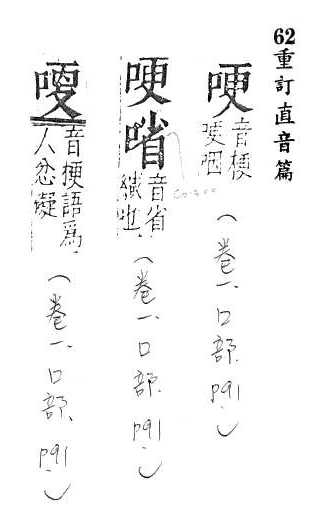 62重訂直音篇
哽音梗哽咽(卷一、口部、P91)
哽㗂音省纎也(卷一、口部、P91)
音梗語為人忿礙(卷一、口部、P91)